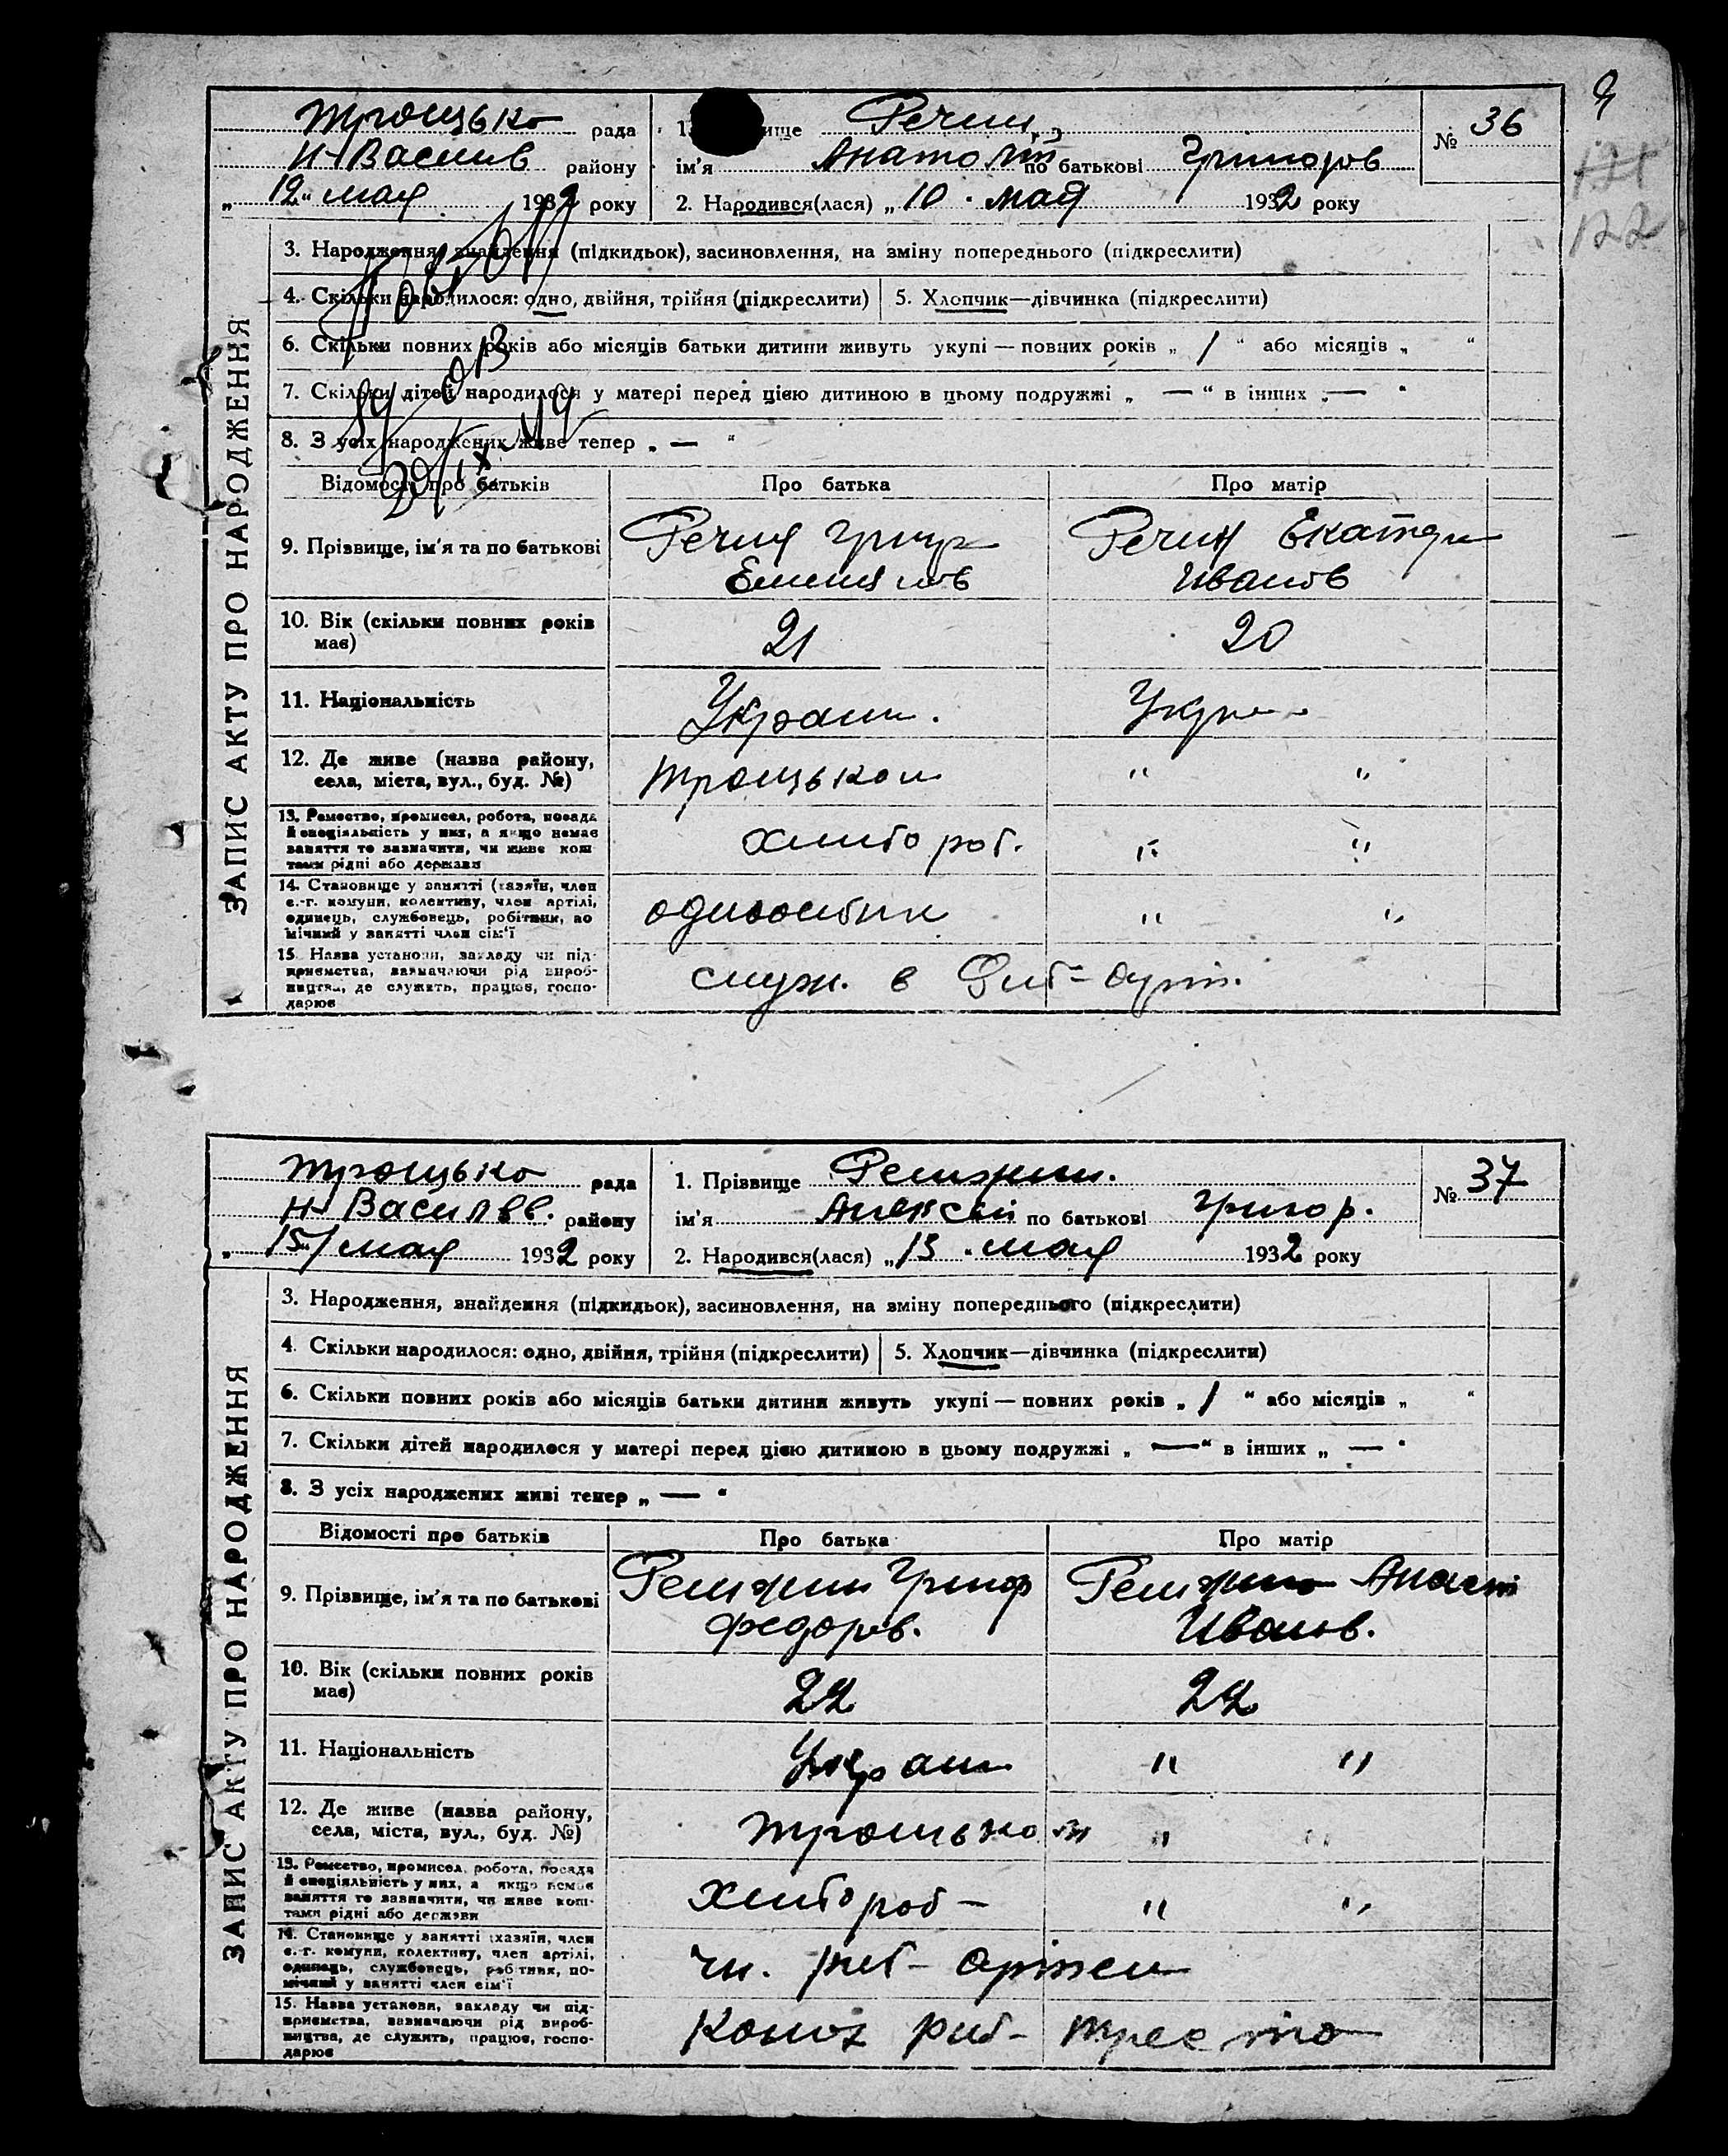 Троцько рада
Н-Василів району
„12" мая 1932 року
1. ище Речин
ім'я Анатолій по батькові Григоров
2. Народився(лася) „10" мая 1932 року
№ 36
9
171
122
ЗАПИС АКТУ ПРО НАРОДЖЕННЯ
3. Народження, знайдення (підкидьок), засиновлення, на зміну попереднього (підкреслити)
4. Скільки народилося: одно, двійня, трійня (підкреслити) 5. Хлопчик—дівчинка (підкреслити)
6. Скільки повних років або місяців батьки дитини живуть укупі — повних років „ 1 " або місяців „ "
7. Скільки дітей народилося у матері перед цією дитиною в цьому подружжі „ — " в інших „ — "
8. З усіх народжених живе тепер „ — "
Відомості про батьків Про батька Про матір
9. Прізвище, ім'я та по батькові Речин Григор Речин Екатери
Иванов
10. Вік (скільки повних років має) 21 20
11. Національність Украин. Укра
12. Де живе (назва району, села, міста, вул., буд. №) Троцькои " "
13. Ремество, промисел, робота, посада й спеціяльність у них, а якщо немає заняття то зазначити, чи живе коштами рідні або держави хлібороб. " "
14. Становище у занятті (хазяїн, член с.-г. комуни, колективу, член артілі, одинець, службовець, робітник, помічний у занятті член сім'ї одноосібник " "
15. Назва установи, закладу чи підприємства, зазначаючи рід виробництва, де служить, працює, господарює служ. в риб-арт.
Троцько рада
Н-Василвв. району
„15" мая 1932 року
1. Прізвище
ім'я Алексей по батькові Григор.
2. Народився(лася) „13" мая 1932 року
№ 37
ЗАПИС АКТУ ПРО НАРОДЖЕННЯ
3. Народження, знайдення (підкидьок), засиновлення, на зміну попереднього (підкреслити)
4. Скільки народилося: одно, двійня, трійня (підкреслити) 5. Хлопчик—дівчинка (підкреслити)
6. Скільки повних років або місяців батьки дитини живуть укупі — повних років „ 1 " або місяців „ "
7. Скільки дітей народилося у матері перед цією дитиною в цьому подружжі „ — " в інших „ — "
8. З усіх народжених живі тепер „ — "
Відомості про батьків Про батька Про матір
9. Прізвище, ім'я та по батькові Григор Анаст
Федоров. Иванов.
10. Вік (скільки повних років має) 22 22
11. Національність Украин " "
12. Де живе (назва району, села, міста, вул., буд. №) Троцько " "
13. Ремество, промисел, робота, посада й спеціяльність у них, а якщо немає заняття то зазначити, чи живе коштами рідні або держави хлібороб — " "
14. Становище у занятті (хазяїн, член с.-г. комуни, колективу, член артілі, одинець, службовець, робітник, помічний у занятті член сім'ї чл. риб-артел
15. Назва установи, закладу чи підприємства, зазначаючи рід виробництва, де служить, працює, господарює риб-треста